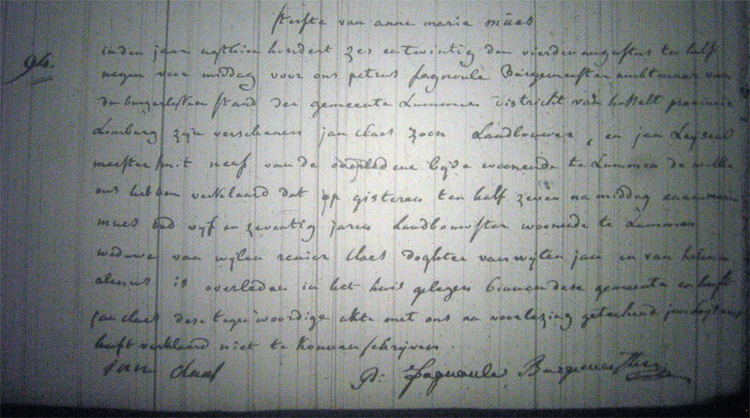 sterfte van anne maria mües
94.
in den jaar agthien hondert zes en twintig den vierden augustus ten half
negen voor middag voor ons petrus fagnoule Burgemeester ambtenaar van
den burgerlyken stand der gemeente Lummen district van hasselt provincie
Limburg zijn verschenen jan claes zoon Landbouwer, en jan
meester smit neef van de overledene beyde woonende te Lummen de welke
ons hebben verklaard dat op gisteren ten half zeven na middag anna maria
mues oud vyf en zeventig jaren Landbouwster woonende te Lummen
weduwe van wylen renier claes doghter van wylen jan en van helena
is overleden in het huis gelegen binnen dese gemeente en heeft
jan claes dese tegenwoordige akte met ons na voorlezing getekend jan
heeft verklaard niet te konnen schrijven
jan claes P: fagnoule Burgemeester